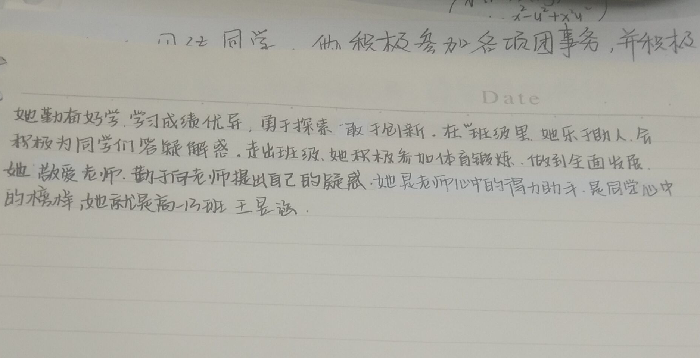 x²-y²+x²y
同学. 他积极参加各项团事务,并积极
Date
她勤奋好学.学习成绩优异,勇于探索 敢于创新.在班级里 她乐于助人.会
积极为同学们答疑解惑.走出班级.她积极参加体育锻炼.做到全面发展.
她 敬爱老师.勤于向老师提出自己的疑惑.她是老师心中的得力助手.是同学心中
的榜样,她就是高一13班 王昱涵.